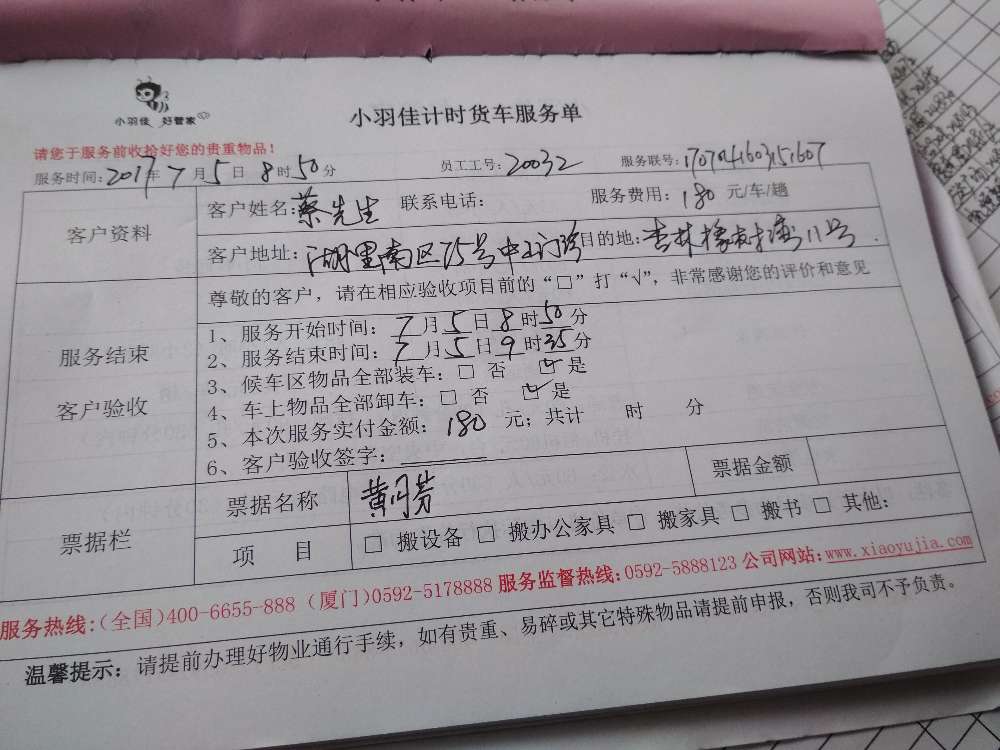 小羽佳 好管家
小羽佳计时货车服务单
请您于服务前收拾好您的贵重物品！
服务时间：2017年7月5日8时50分 员工工号：20032 服务联号：1707041603151607
客户资料
客户姓名：蔡先生 联系电话： 服务费用：180元/车/趟
客户地址：湖里南区75号中医门诊 目的地：杏林橡树湾11号
服务结束
客户验收
尊敬的客户，请在相应验收项目前的“□”打“√”，非常感谢您的评价和意见
1、服务开始时间：7月5日8时50分
2、服务结束时间：7月5日9时35分
3、候车区物品全部装车：□ 否 ☑是
4、车上物品全部卸车：□ 否 ☑是
5、本次服务实付金额：180元；共计 时 分
6、客户验收签字：
票据栏
票据名称 黄月芬 票据金额
项 目 □ 搬设备 □ 搬办公家具 □ 搬家具 □ 搬书 □ 其他：
服务热线：(全国)400-6655-888 (厦门)0592-5178888 服务监督热线：0592-5888123 公司网站：www.xiaoyujia.com
温馨提示：请提前办理好物业通行手续，如有贵重、易碎或其它特殊物品请提前申报，否则我司不予负责。